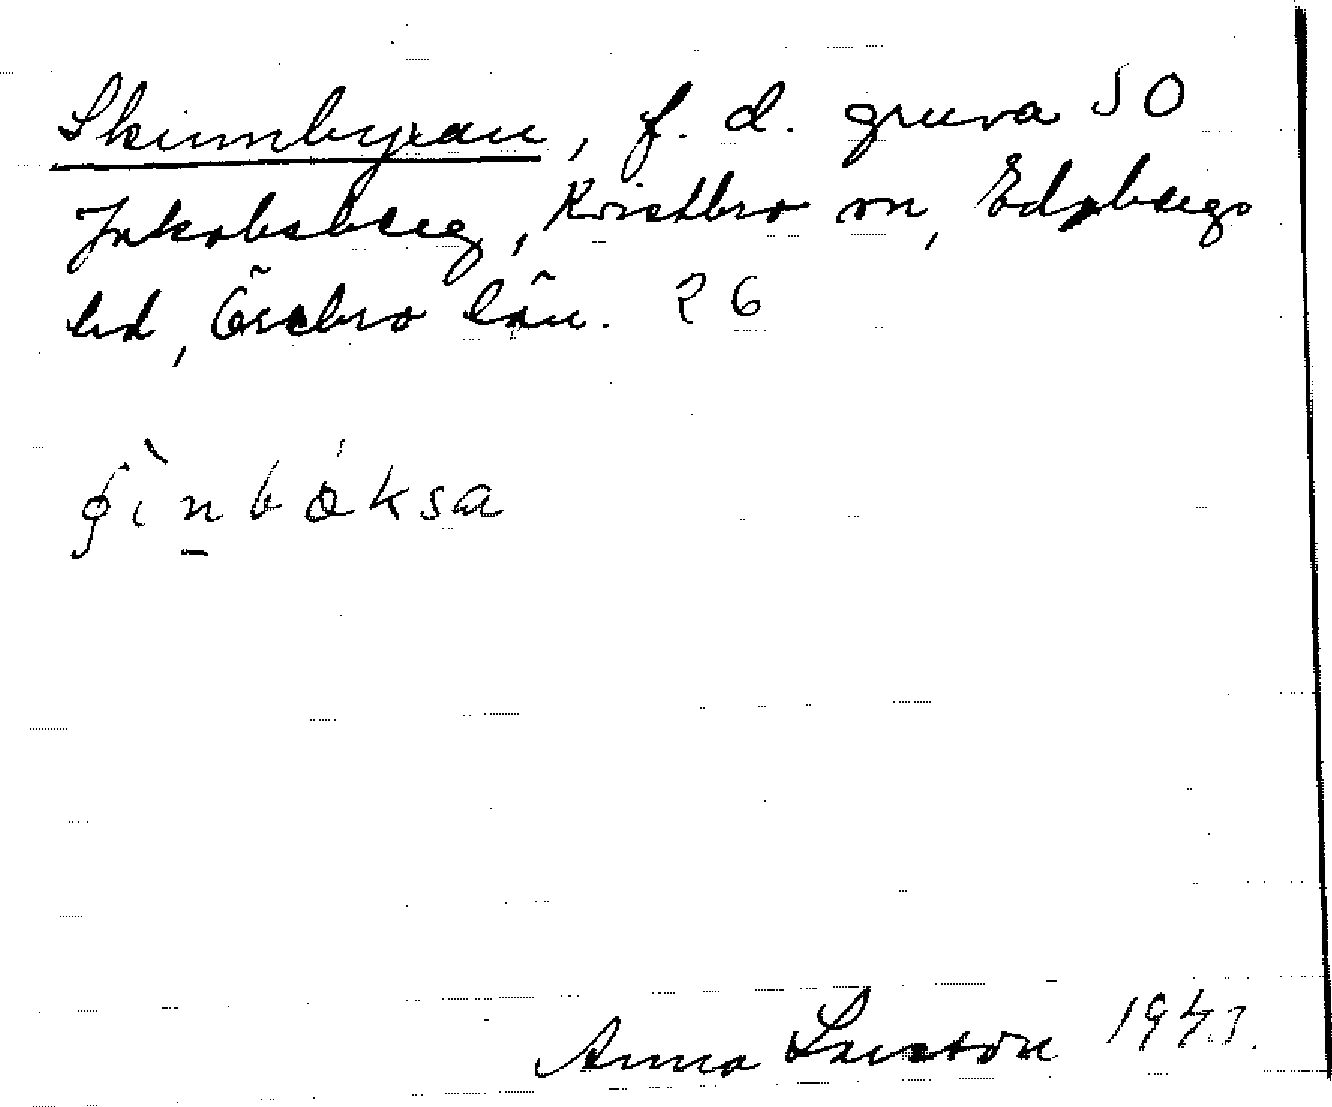 Skinnbyxan, f. d. gruva SO
Jakobsberg, Kvistbro sn, Edsbergs
hd, Örebro län. 26
Anna Larsson